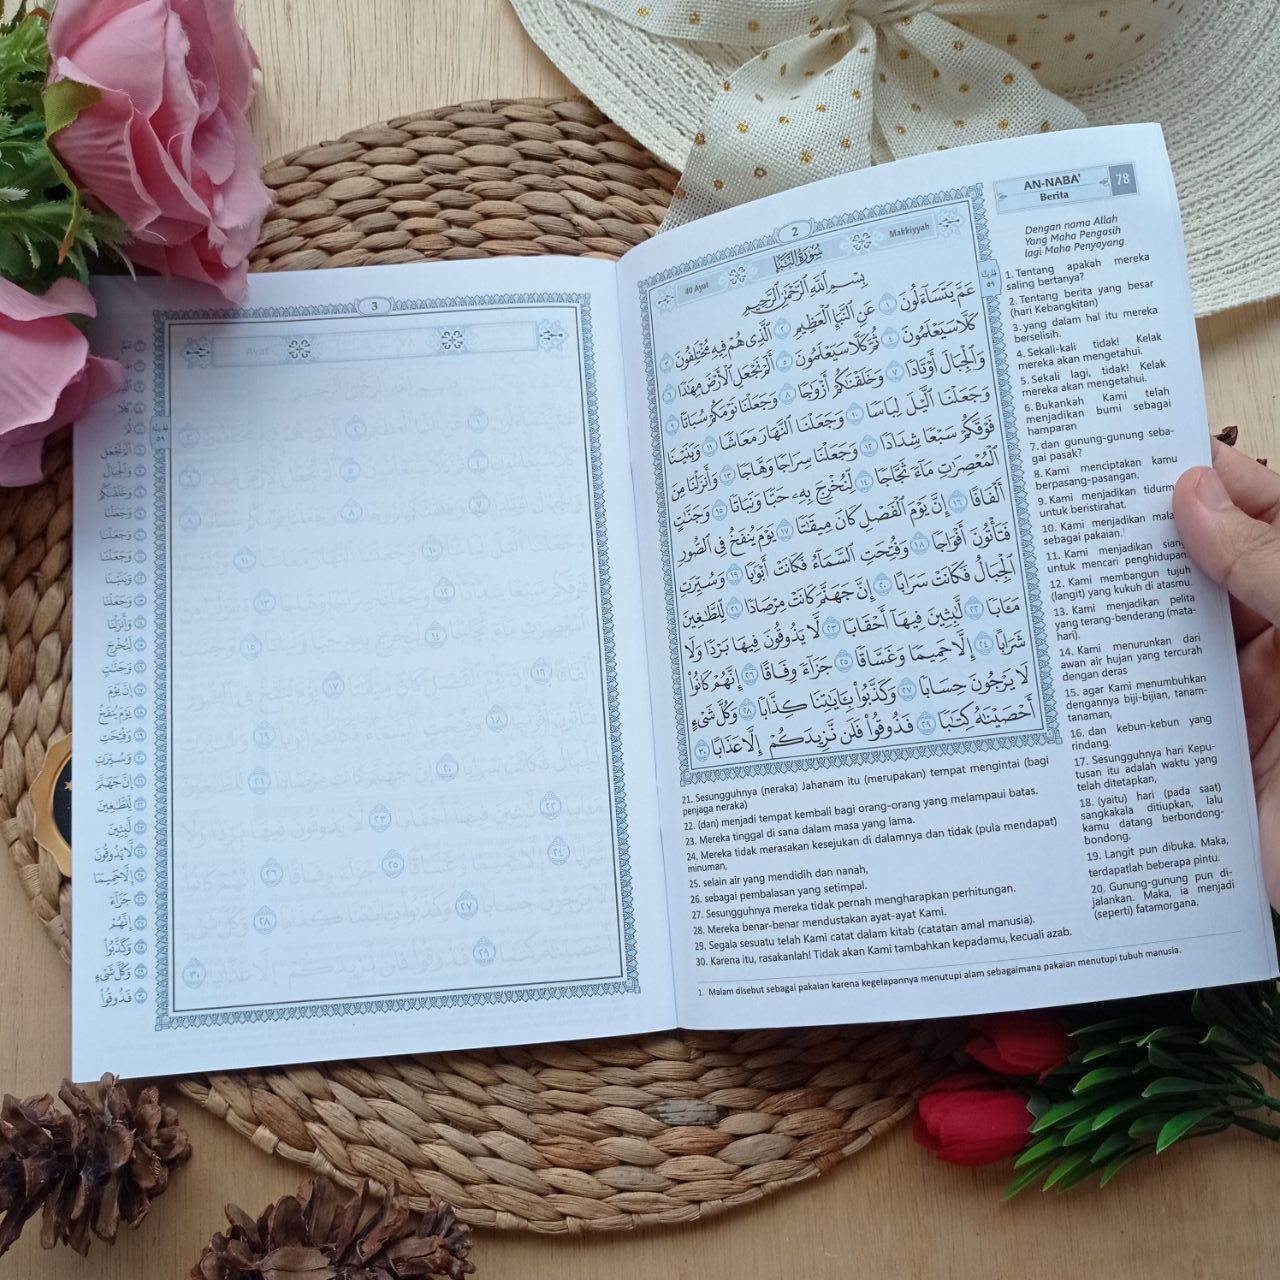 2
سُورَةُ النَّبَإِ
40 Ayat
Makkiyyah
بِسْمِ اللَّهِ الرَّحْمَٰنِ الرَّحِيمِ
عَمَّ يَتَسَاءَلُونَ ١ عَنِ النَّبَإِ الْعَظِيمِ ٢ الَّذِي هُمْ فِيهِ مُخْتَلِفُونَ ٣
كَلَّا سَيَعْلَمُونَ ٤ ثُمَّ كَلَّا سَيَعْلَمُونَ ٥ أَلَمْ نَجْعَلِ الْأَرْضَ مِهَٰدًا ٦
وَالْجِبَالَ أَوْتَادًا ٧ وَخَلَقْنَٰكُمْ أَزْوَٰجًا ٨ وَجَعَلْنَا نَوْمَكُمْ سُبَاتًا ٩
وَجَعَلْنَا الَّيْلَ لِبَاسًا ١٠ وَجَعَلْنَا النَّهَارَ مَعَاشًا ١١ وَبَنَيْنَا
فَوْقَكُمْ سَبْعًا شِدَادًا ١٢ وَجَعَلْنَا سِرَاجًا وَهَّاجًا ١٣ وَأَنزَلْنَا مِنَ
الْمُعْصِرَٰتِ مَآءً ثَجَّاجًا ١٤ لِّنُخْرِجَ بِهِۦ حَبًّا وَنَبَاتًا ١٥ وَجَنَّٰتٍ
أَلْفَافًا ١٦ إِنَّ يَوْمَ الْفَصْلِ كَانَ مِيقَٰتًا ١٧ يَوْمَ يُنفَخُ فِي الصُّورِ
فَتَأْتُونَ أَفْوَاجًا ١٨ وَفُتِحَتِ السَّمَآءُ فَكَانَتْ أَبْوَٰبًا ١٩ وَسُيِّرَتِ
الْجِبَالُ فَكَانَتْ سَرَابًا ٢٠ إِنَّ جَهَنَّمَ كَانَتْ مِرْصَادًا ٢١ لِّلطَّٰغِينَ
مَـَٔابًا ٢٢ لَّٰبِثِينَ فِيهَآ أَحْقَابًا ٢٣ لَّا يَذُوقُونَ فِيهَا بَرْدًا وَلَا
شَرَابًا ٢٤ إِلَّا حَمِيمًا وَغَسَّاقًا ٢٥ جَزَآءً وِفَاقًا ٢٦ إِنَّهُمْ كَانُوا۟
لَا يَرْجُونَ حِسَابًا ٢٧ وَكَذَّبُوا۟ بِـَٔايَٰتِنَا كِذَّابًا ٢٨ وَكُلَّ شَىْءٍ
أَحْصَيْنَٰهُ كِتَٰبًا ٢٩ فَذُوقُوا۟ فَلَن نَّزِيدَكُمْ إِلَّا عَذَابًا ٣٠
AN-NABA'
Berita
78
Dengan nama Allah
Yang Maha Pengasih
lagi Maha Penyayang
1. Tentang apakah mereka
saling bertanya?
2. Tentang berita yang besar
(hari Kebangkitan)
3. yang dalam hal itu mereka
berselisih.
4. Sekali-kali tidak! Kelak
mereka akan mengetahui.
5. Sekali lagi, tidak! Kelak
mereka akan mengetahui.
6. Bukankah Kami telah
menjadikan bumi sebagai
hamparan
7. dan gunung-gunung seba-
gai pasak?
8. Kami menciptakan kamu
berpasang-pasangan.
9. Kami menjadikan tidurm
untuk beristirahat.
10. Kami menjadikan mala
sebagai pakaian.¹
11. Kami menjadikan sian
untuk mencari penghidupan.
12. Kami membangun tujuh
(langit) yang kukuh di atasmu.
13. Kami menjadikan pelita
yang terang-benderang (mata-
hari).
14. Kami menurunkan dari
awan air hujan yang tercurah
dengan deras
15. agar Kami menumbuhkan
dengannya biji-bijian, tanam-
tanaman,
16. dan kebun-kebun yang
rindang.
17. Sesungguhnya hari Kepu-
tusan itu adalah waktu yang
telah ditetapkan,
18. (yaitu) hari (pada saat)
sangkakala ditiupkan, lalu
kamu datang berbondong-
bondong.
19. Langit pun dibuka. Maka,
terdapatlah beberapa pintu.
20. Gunung-gunung pun di-
jalankan. Maka, ia menjadi
(seperti) fatamorgana.
21. Sesungguhnya (neraka) Jahanam itu (merupakan) tempat mengintai (bagi
penjaga neraka)
22. (dan) menjadi tempat kembali bagi orang-orang yang melampaui batas.
23. Mereka tinggal di sana dalam masa yang lama.
24. Mereka tidak merasakan kesejukan di dalamnya dan tidak (pula mendapat)
minuman,
25. selain air yang mendidih dan nanah,
26. sebagai pembalasan yang setimpal.
27. Sesungguhnya mereka tidak pernah mengharapkan perhitungan.
28. Mereka benar-benar mendustakan ayat-ayat Kami.
29. Segala sesuatu telah Kami catat dalam kitab (catatan amal manusia).
30. Karena itu, rasakanlah! Tidak akan Kami tambahkan kepadamu, kecuali azab.
1. Malam disebut sebagai pakaian karena kegelapannya menutupi alam sebagaimana pakaian menutupi tubuh manusia.
3
أَلَمْ نَجْعَلِ
وَالْجِبَالَ
وَخَلَقْنَٰكُمْ
وَجَعَلْنَا
وَجَعَلْنَا
وَجَعَلْنَا
وَبَنَيْنَا
وَجَعَلْنَا
وَأَنزَلْنَا
لِّنُخْرِجَ
وَجَنَّٰتٍ
إِنَّ يَوْمَ
يَوْمَ يُنفَخُ
وَفُتِحَتِ
وَسُيِّرَتِ
إِنَّ جَهَنَّمَ
لِّلطَّٰغِينَ
لَّٰبِثِينَ
لَّا يَذُوقُونَ
إِلَّا حَمِيمًا
جَزَآءً
إِنَّهُمْ
وَكَذَّبُوا۟
وَكُلَّ شَىْءٍ
فَذُوقُوا۟